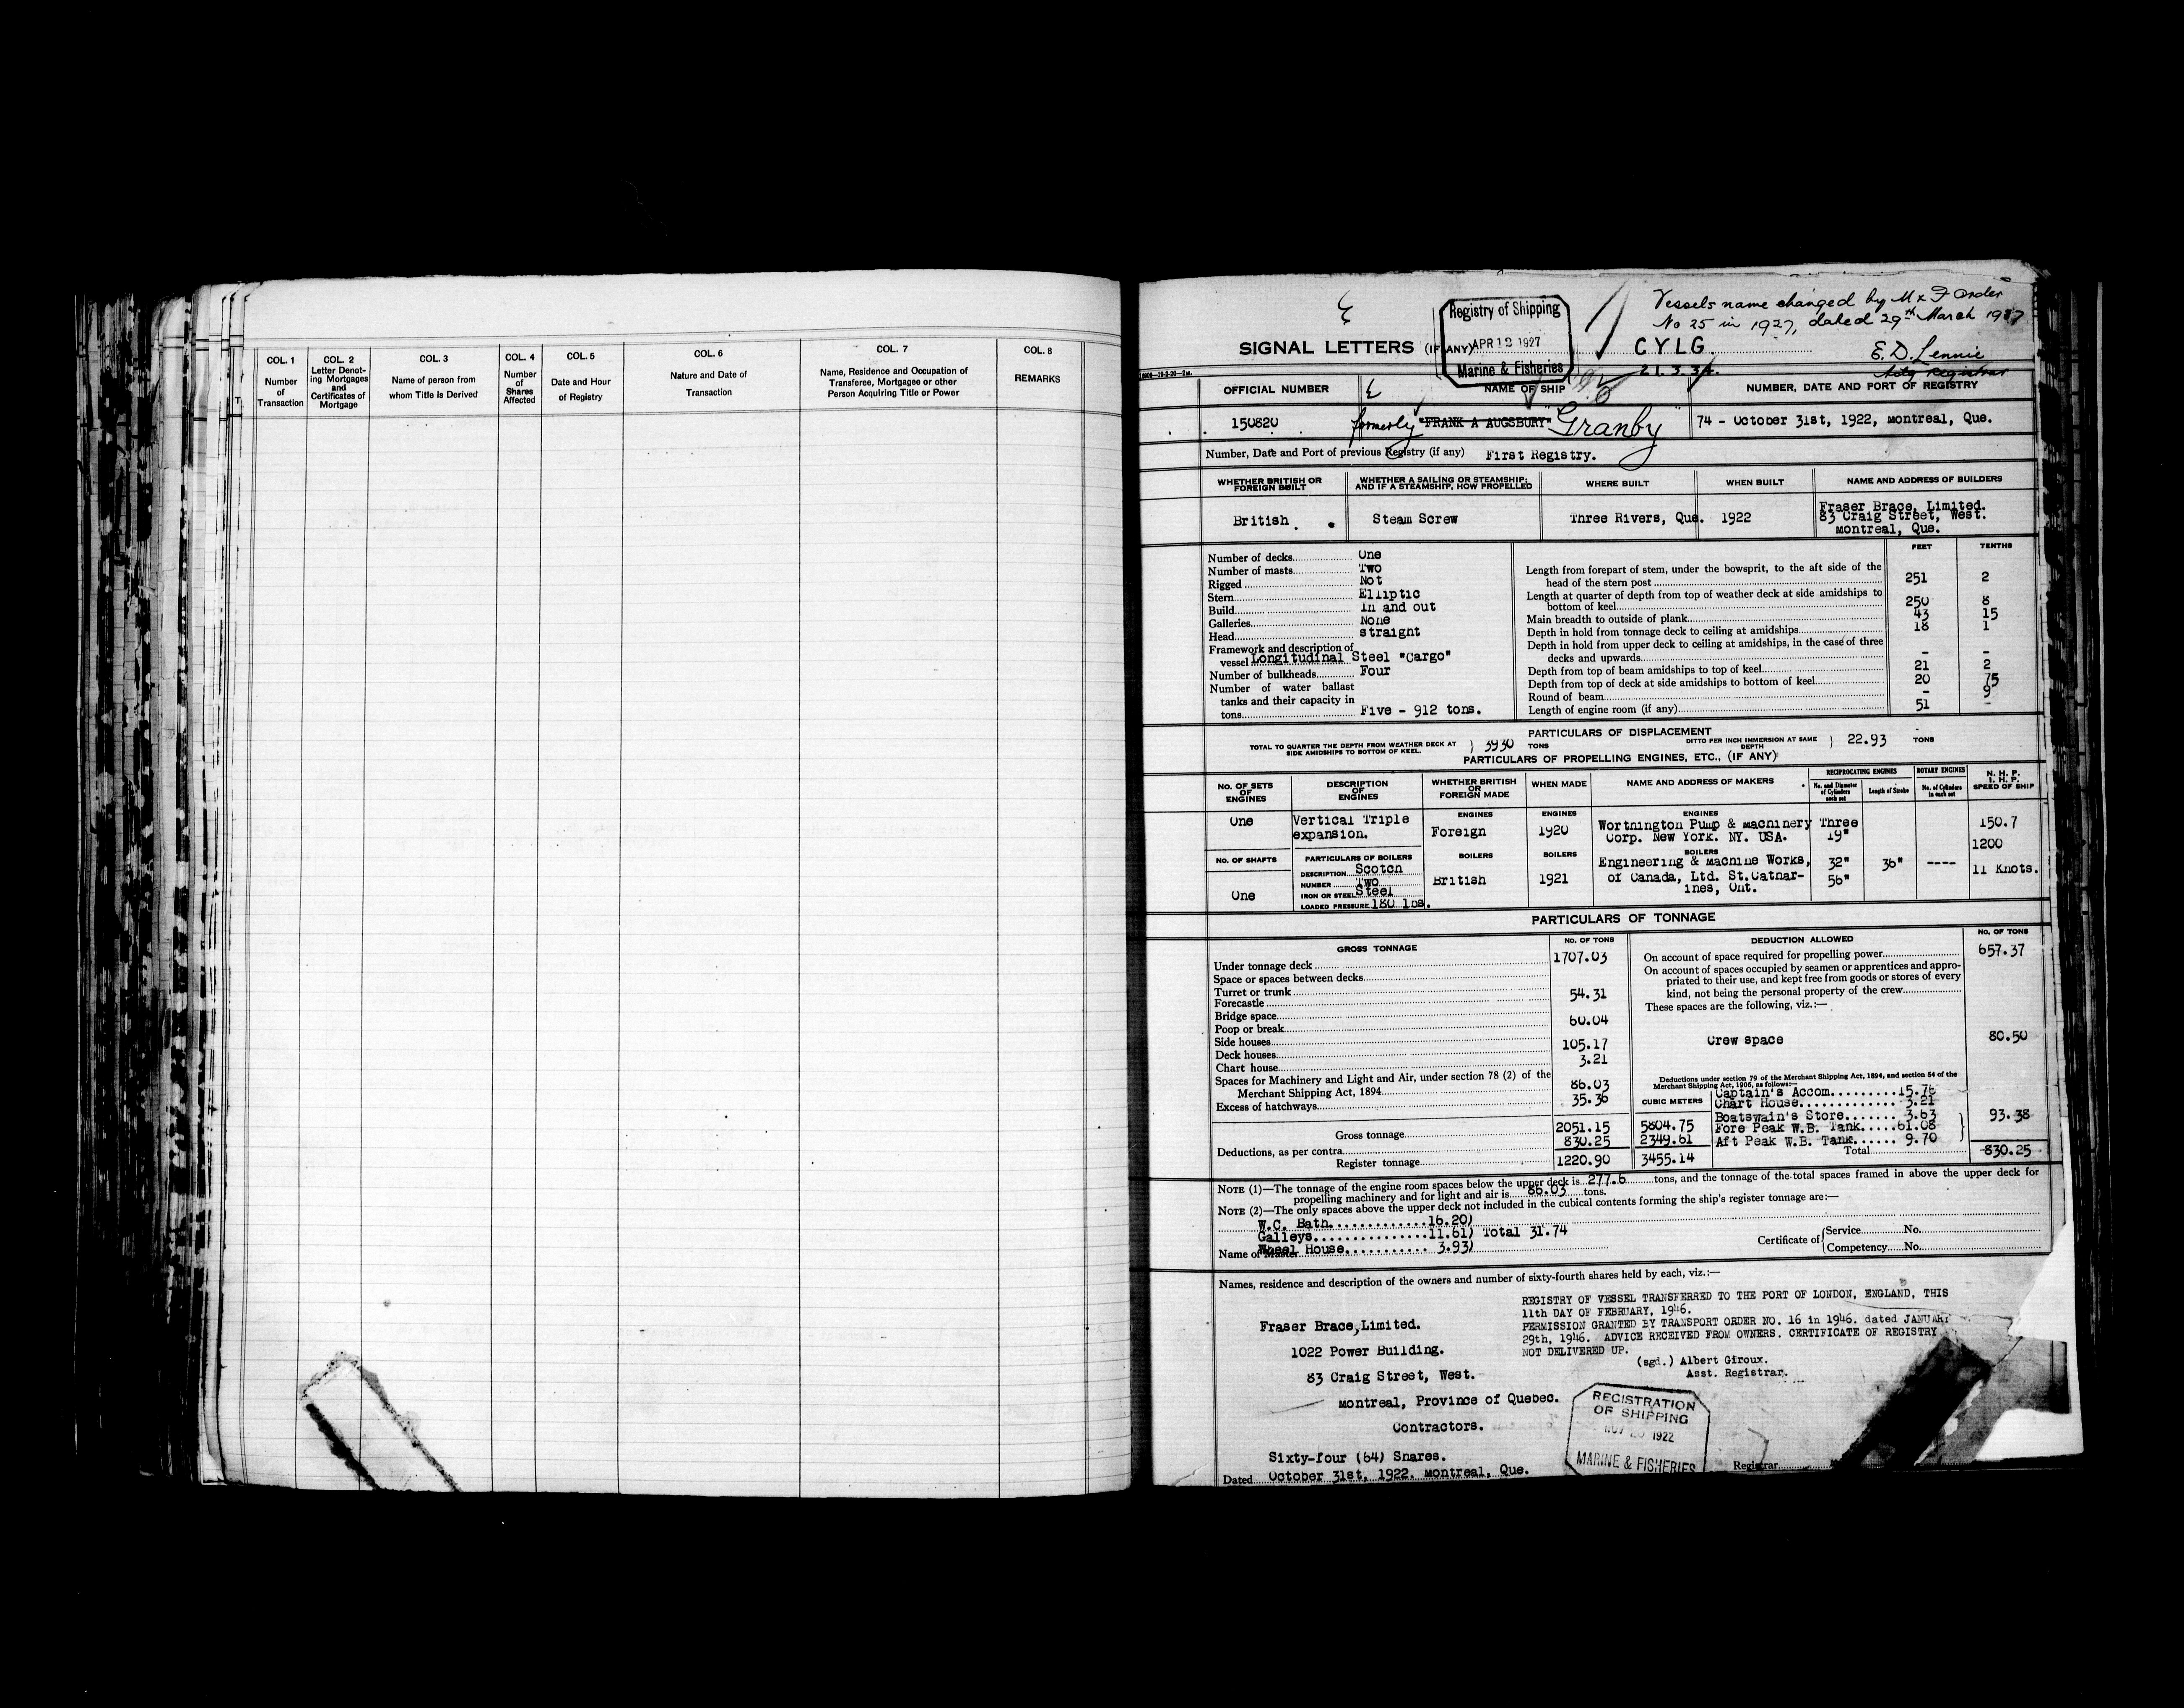 COL. 1
Number
of
Transaction
COL. 2
Letter Denot-
ing Mortgages
and
Certificates of
Mortgage
COL. 3
Name of person from
whom Title Is Derived
COL. 4
Number
of
Shares
Affected
COL. 5
Date and Hour
of Registry
COL. 6
Nature and Date of
Transaction
COL. 7
Name, Residence and Occupation of
Transferee, Mortgagee or other
Person Acquiring Title or Power
COL. 8
REMARKS
Vessels name changed by M & F Order
No 25 in 1927, dated 29th March 1927
E. D. Lennie
Actg Registrar
Registry of Shipping
APR 12 1927
Marine & Fisheries
SIGNAL LETTERS (IF ANY) CYLG.
21.3.34.
OFFICIAL NUMBER
NAME OF SHIP
NUMBER, DATE AND PORT OF REGISTRY
150820
formerly "FRANK A AUGSBURY" "Granby"
74 - October 31st, 1922, Montreal, Que.
Number, Date and Port of previous Registry (if any) First Registry.
WHETHER BRITISH OR
FOREIGN BUILT
WHETHER A SAILING OR STEAMSHIP;
AND IF A STEAMSHIP, HOW PROPELLED
WHERE BUILT
WHEN BUILT
NAME AND ADDRESS OF BUILDERS
British
Steam Screw
Three Rivers, Que.
1922
Fraser Brace, Limited.
83 Craig Street, West.
Montreal, Que.
Number of decks One
Number of masts Two
Rigged Not
Stern Elliptic
Build In and out
Galleries None
Head straight
Framework and description of
vessel Longitudinal Steel "Cargo"
Number of bulkheads Four
Number of water ballast
tanks and their capacity in
tons Five - 912 tons.
FEET TENTHS
Length from forepart of stem, under the bowsprit, to the aft side of the
head of the stern post 251 2
Length at quarter of depth from top of weather deck at side amidships to
bottom of keel 250 8
Main breadth to outside of plank 43 15
Depth in hold from tonnage deck to ceiling at amidships 18 1
Depth in hold from upper deck to ceiling at amidships, in the case of three
decks and upwards - -
Depth from top of beam amidships to top of keel 21 2
Depth from top of deck at side amidships to bottom of keel 20 75
Round of beam - 9
Length of engine room (if any) 51 -
PARTICULARS OF DISPLACEMENT
TOTAL TO QUARTER THE DEPTH FROM WEATHER DECK AT
SIDE AMIDSHIPS TO BOTTOM OF KEEL. } 3930 TONS
DITTO PER INCH IMMERSION AT SAME
DEPTH } 22.93 TONS
PARTICULARS OF PROPELLING ENGINES, ETC., (IF ANY)
NO. OF SETS
OF
ENGINES
DESCRIPTION
OF
ENGINES
WHETHER BRITISH
OR
FOREIGN MADE
WHEN MADE
NAME AND ADDRESS OF MAKERS
RECIPROCATING ENGINES
No. and Diameter
of Cylinders
each set
Length of Stroke
ROTARY ENGINES
No. of Cylinders
in each set
N. H. P.
I. H. P.
SPEED OF SHIP
One
Vertical Triple
expansion.
ENGINES
Foreign
ENGINES
1920
ENGINES
Worthington Pump & machinery
Corp. New York. NY. USA.
Three
19"
32"
56"
36"
----
150.7
1200
11 Knots.
NO. OF SHAFTS
One
PARTICULARS OF BOILERS
DESCRIPTION Scotch
NUMBER Two
IRON OR STEEL Steel
LOADED PRESSURE 180 lbs.
BOILERS
British
BOILERS
1921
BOILERS
Engineering & machine Works,
of Canada, Ltd. St.Cathar-
ines, Ont.
PARTICULARS OF TONNAGE
GROSS TONNAGE
NO. OF TONS
Under tonnage deck 1707.03
Space or spaces between decks
Turret or trunk
Forecastle 54.31
Bridge space
Poop or break 60.04
Side houses
Deck houses 105.17
Chart house 3.21
Spaces for Machinery and Light and Air, under section 78 (2) of the
Merchant Shipping Act, 1894 86.03
Excess of hatchways 35.36
Gross tonnage 2051.15
Deductions, as per contra 830.25
Register tonnage 1220.90
CUBIC METERS
5804.75
2349.61
3455.14
DEDUCTION ALLOWED
NO. OF TONS
On account of space required for propelling power 657.37
On account of spaces occupied by seamen or apprentices and appro-
priated to their use, and kept free from goods or stores of every
kind, not being the personal property of the crew
These spaces are the following, viz.:—
Crew space 80.50
Deductions under section 79 of the Merchant Shipping Act, 1894, and section 54 of the
Merchant Shipping Act, 1906, as follows:—
Captain's Accom. 15.76
Chart House 3.21
Boatswain's Store 3.63
Fore Peak W.B. Tank 61.08
Aft Peak W.B. Tank 9.70
93.38
Total 830.25
NOTE (1)—The tonnage of the engine room spaces below the upper deck is 277.6 tons, and the tonnage of the total spaces framed in above the upper deck for
propelling machinery and for light and air is 86.03 tons.
NOTE (2)—The only spaces above the upper deck not included in the cubical contents forming the ship's register tonnage are:—
W.C. Bath 16.20)
Galleys 11.61) Total 31.74
Wheel House 3.93)
Name of Master
Certificate of { Service No.
Competency No.
Names, residence and description of the owners and number of sixty-fourth shares held by each, viz.:—
REGISTRY OF VESSEL TRANSFERRED TO THE PORT OF LONDON, ENGLAND, THIS
11th DAY OF FEBRUARY, 1946.
PERMISSION GRANTED BY TRANSPORT ORDER NO. 16 in 1946. dated JANUARY
29th, 1946. ADVICE RECEIVED FROM OWNERS. CERTIFICATE OF REGISTRY
NOT DELIVERED UP.
(sgd.) Albert Giroux.
Asst. Registrar.
Fraser Brace, Limited.
1022 Power Building.
83 Craig Street, West.
Montreal, Province of Quebec.
Contractors.
Sixty-four (64) Shares.
Dated October 31st, 1922. Montreal, Que.
REGISTRATION
OF SHIPPING
1922
MARINE & FISHERIES
Registrar